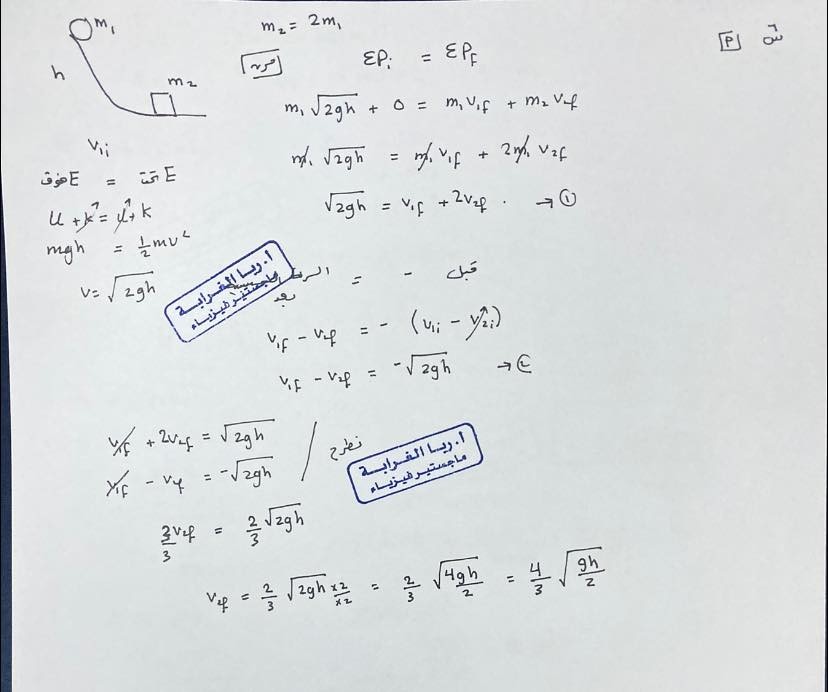 س [P]
m₁
m₂ = 2m₁
h
m₂
مرن
ΣPᵢ = ΣP_f
m₁ √2gh + 0 = m₁ v₁f + m₂ v₂f
m₁ √2gh = m₁ v₁f + 2m₁ v₂f
√2gh = v₁f + 2v₂f . → ①
v₁ᵢ
E فوق = E تحت
U + k = U + k
mgh = ½ mv²
v = √2gh
أ. ربا الغرابة
ماجستير فيزياء
بعد = - قبل
v₁f - v₂f = - (v₁ᵢ - v₂ᵢ)
v₁f - v₂f = -√2gh → ②
v₁f + 2v₂f = √2gh
v₁f - v₂f = -√2gh
نطرح
أ. ربا الغرابة
ماجستير فيزياء
3/3 v₂f = 2/3 √2gh
v₂f = 2/3 √2gh ×2/×2 = 2/3 √4gh/2 = 4/3 √gh/2